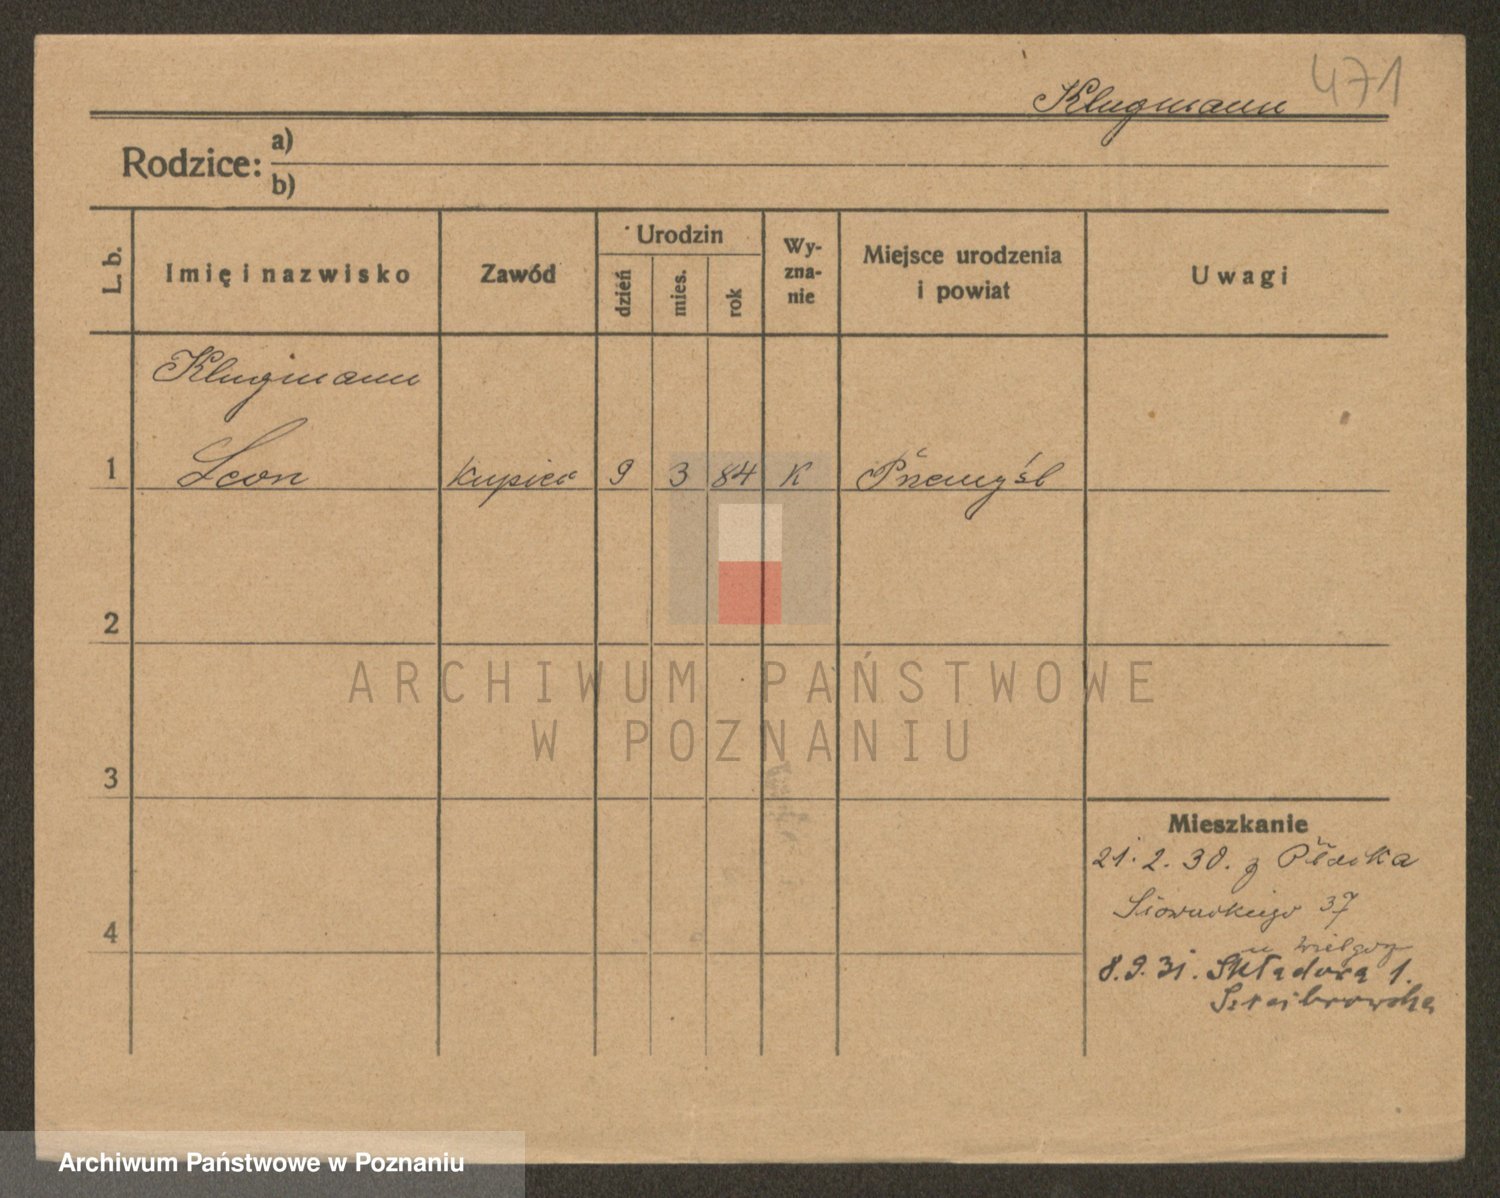 Klugmann 471
Rodzice: a)
b)
L. b.
Imię i nazwisko
Zawód
Urodzin
dzień
mies.
rok
Wy-
zna-
nie
Miejsce urodzenia
i powiat
Uwagi
Klugmann
1 Leon kupiec 9 3 84 K Přemyśl
2
3
4
Mieszkanie
21. 2. 30. z
37
8. 9. 31. 1.
ARCHIWUM PAŃSTWOWE
W POZNANIU
Archiwum Państwowe w Poznaniu